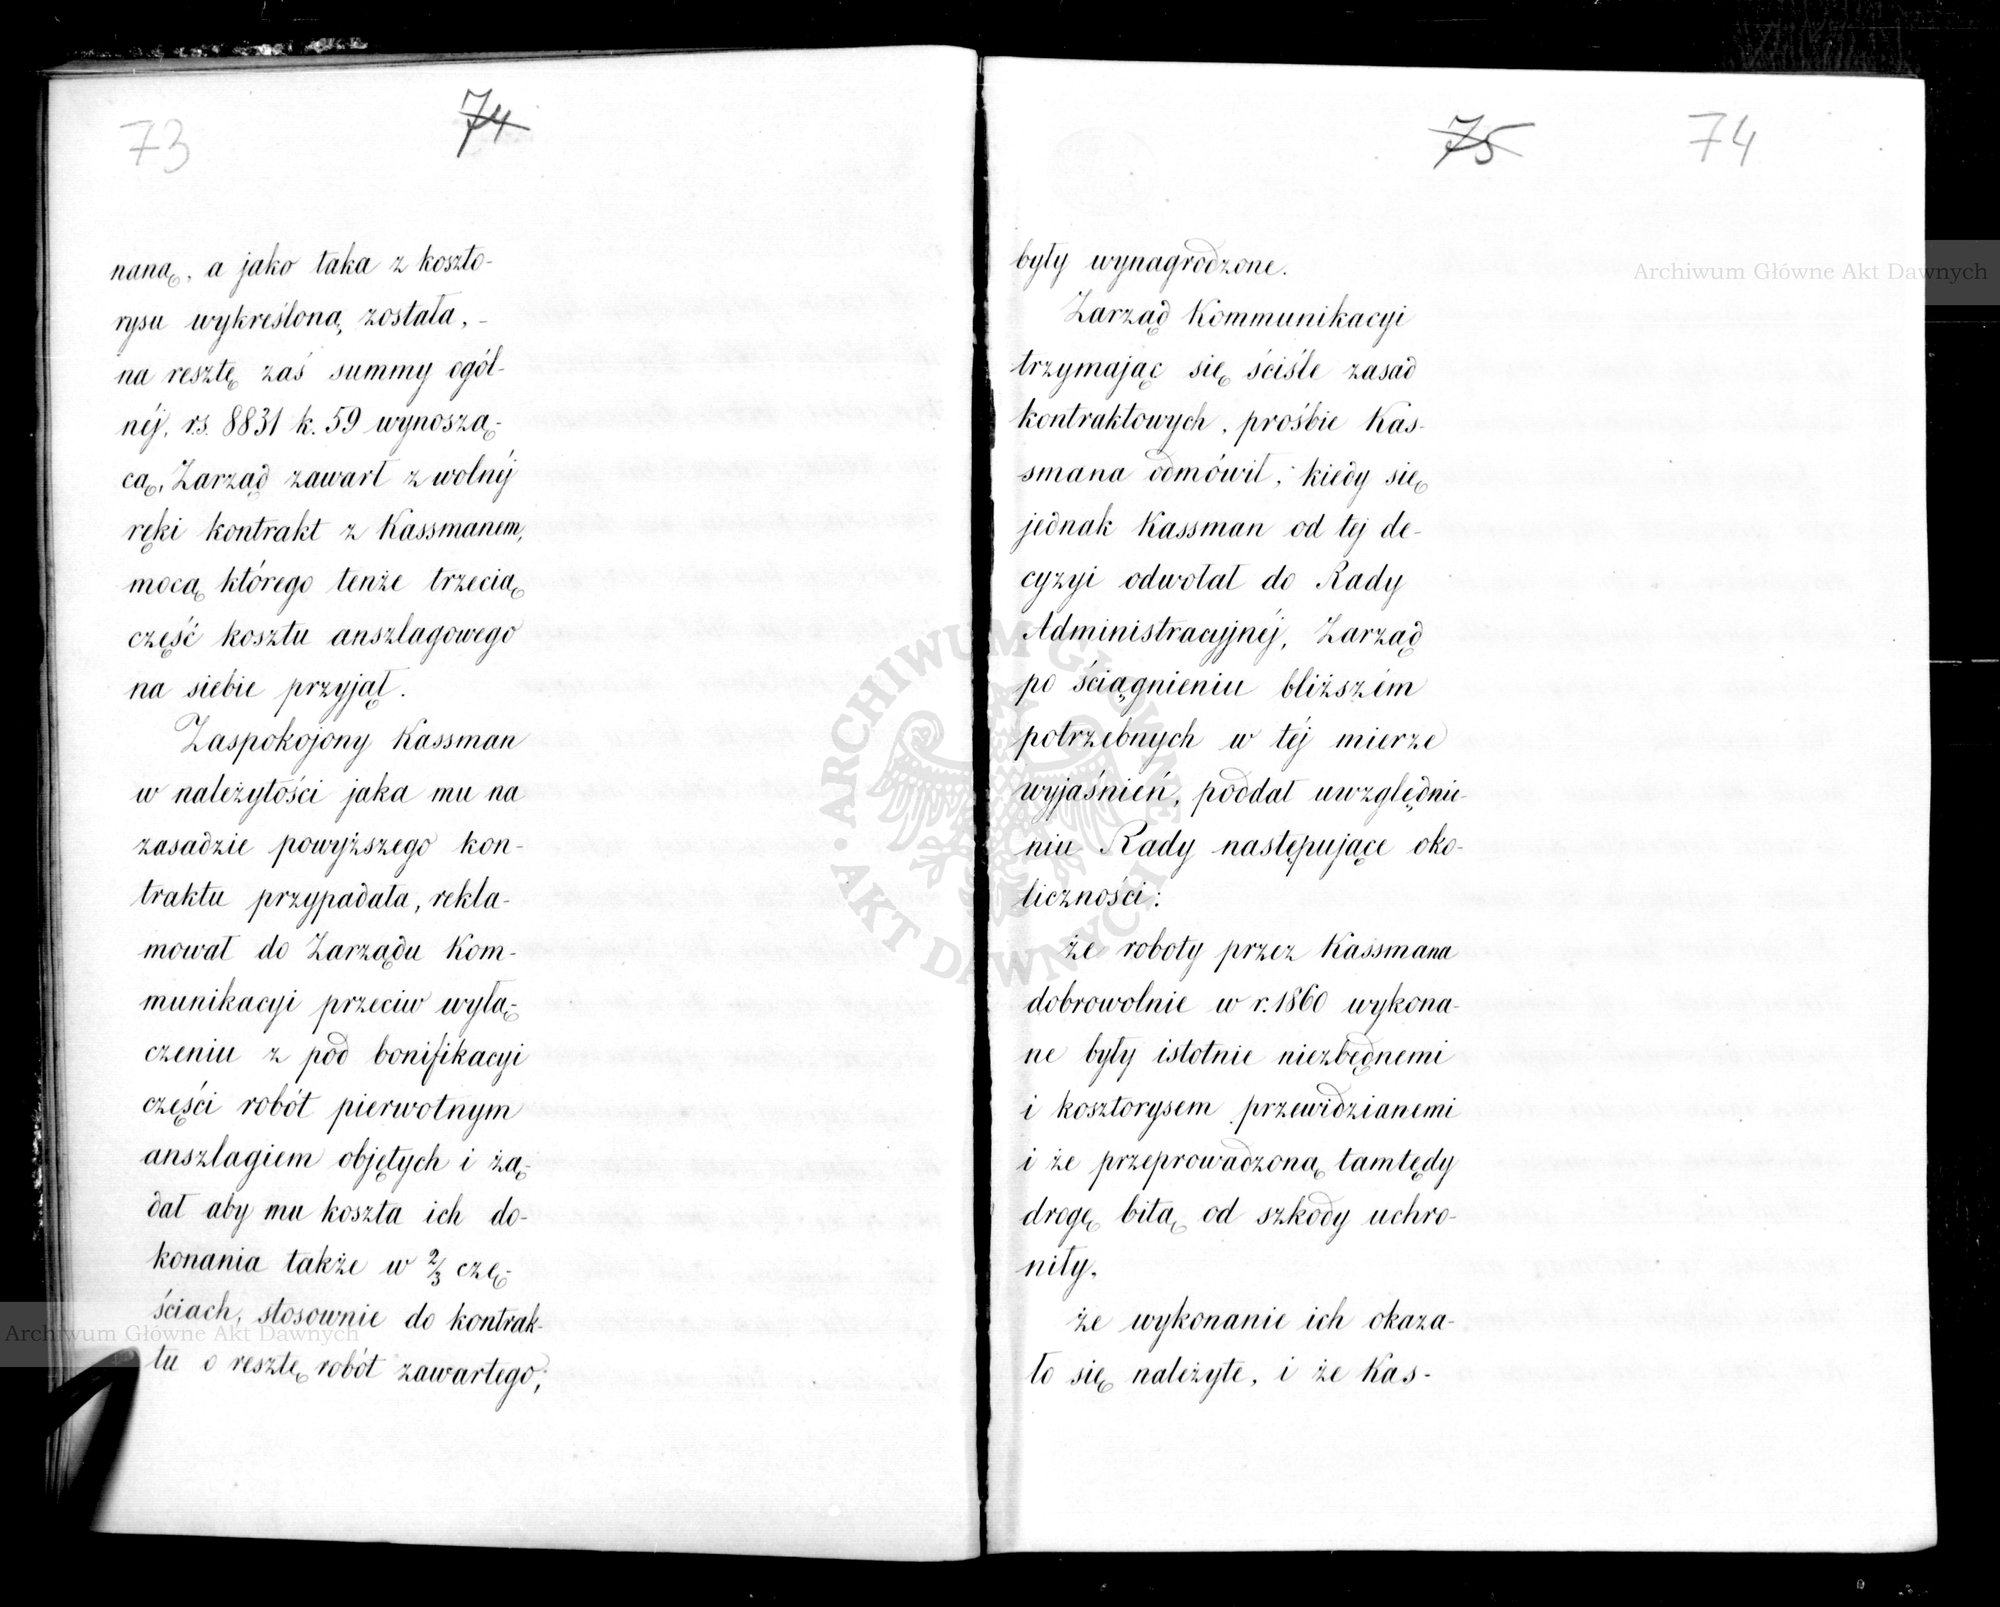 73
74
naną, a jako taka z koszto-
rysu wykreśloną została, -
na resztę zaś summy ogól-
néj, rs. 8831 k. 59 wynoszą-
cą, Zarząd zawarł z wolnéj
ręki kontrakt z Kassmanem,
mocą którego tenże trzecią
część kosztu anszlagowego
na siebie przyjął.
Zaspokojony Kassman
w należytości jaka mu na
zasadzie powyższego kon-
traktu przypadała, rekla-
mował do Zarządu Kom-
munikacyi przeciw wyłą-
czeniu z pod bonifikacyi
części robót pierwotnym
anszlagiem objętych i żą-
dał aby mu koszta ich do-
konania także w 2/3 czę-
ściach, stosownie do kontrak-
tu o resztę robót zawartego;
75
74
były wynagrodzone.
Zarząd Kommunikacyi
trzymając się ściśle zasad
kontraktowych, prośbie Kas-
smana odmówił; kiedy się
jednak Kassman od téj de-
cyzyi odwołał do Rady
Administracyjnéj, Zarząd
po ściągnieniu bliższém
potrzebnych w téj mierze
wyjaśnień, poddał uwzględnie-
niu Rady następujące oko-
liczności:
że roboty przez Kassmana
dobrowolnie w r. 1860 wykona-
ne były istotnie niezbędnemi
i kosztorysem przewidzianemi
i że przeprowadzoną tamtędy
drogę bitą od szkody uchro-
niły.
że wykonanie ich okaza-
ło się należyte, i że Kas-
Archiwum Główne Akt Dawnych
Archiwum Główne Akt Dawnych
ARCHIWUM GŁÓWNE • AKT DAWNYCH •